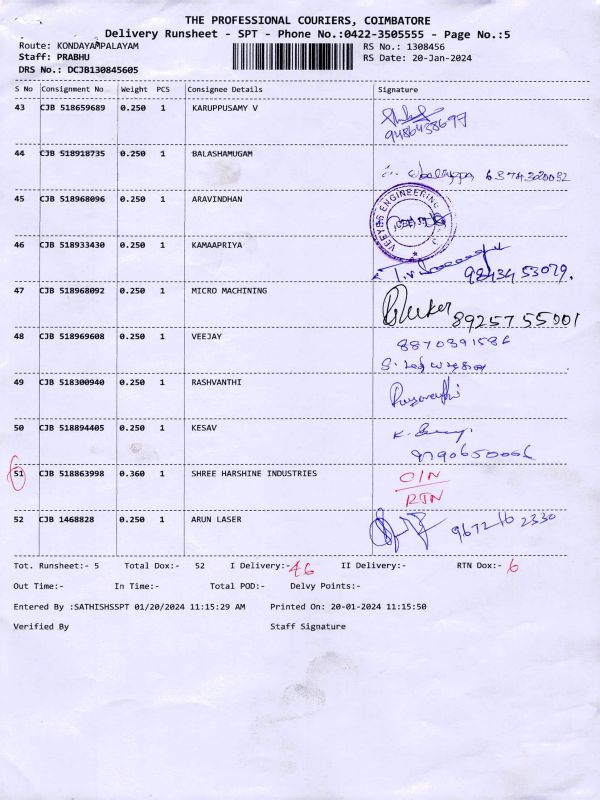 THE PROFESSIONAL COURIERS, COIMBATORE
Delivery Runsheet - SPT - Phone No.:0422-3505555 - Page No.:5
Route: KONDAYAMPALAYAM RS No.: 1308456
Staff: PRABHU RS Date: 20-Jan-2024
DRS No.: DCJB130845605
S No Consignment No Weight PCS Consignee Details Signature
43 CJB 518659689 0.250 1 KARUPPUSAMY V
9486438697
44 CJB 518918735 0.250 1 BALASHAMUGAM
6374320092
45 CJB 518968096 0.250 1 ARAVINDHAN
ENGINEERING
46 CJB 518933430 0.250 1 KAMAAPRIYA
9843453079.
47 CJB 518968092 0.250 1 MICRO MACHINING
8925755001
48 CJB 518969608 0.250 1 VEEJAY
8870391586
49 CJB 518300940 0.250 1 RASHVANTHI
50 CJB 518894405 0.250 1 KESAV
9790650006
51 CJB 518863998 0.360 1 SHREE HARSHINE INDUSTRIES
O/N
RTN
52 CJB 1468828 0.250 1 ARUN LASER
9672162330
Tot. Runsheet:- 5 Total Dox:- 52 I Delivery:-46 II Delivery:- RTN Dox:- 6
Out Time:- In Time:- Total POD:- Delvy Points:-
Entered By :SATHISHSSPT 01/20/2024 11:15:29 AM Printed On: 20-01-2024 11:15:50
Verified By Staff Signature